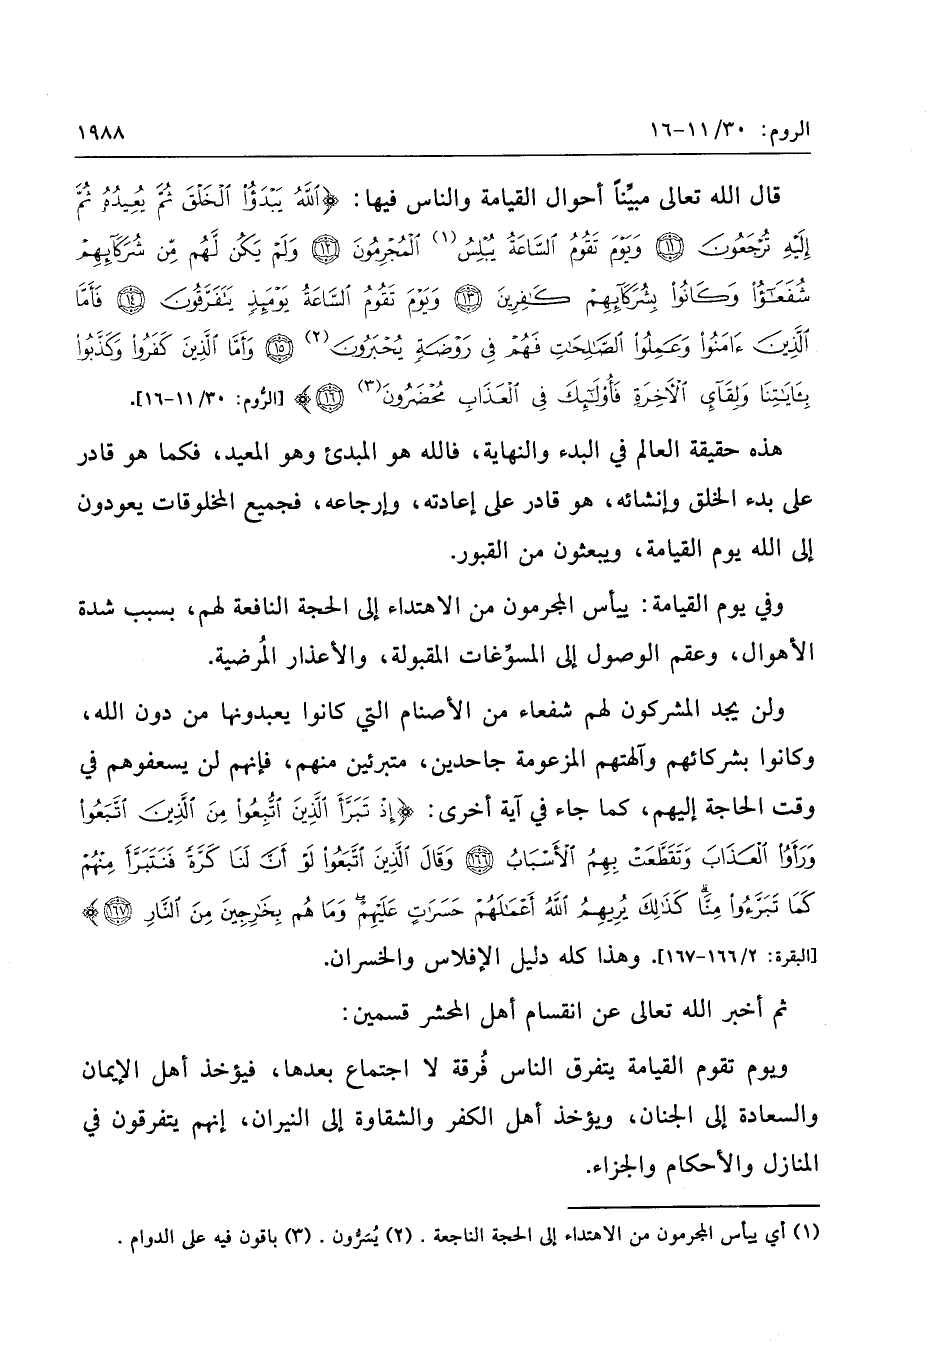 الروم: ٣٠/ ١١-١٦ ١٩٨٨
قال الله تعالى مبيِّناً أحوال القيامة والناس فيها: ﴿ٱللَّهُ يَبۡدَؤُاْ ٱلۡخَلۡقَ ثُمَّ يُعِيدُهُۥ ثُمَّ
إِلَيۡهِ تُرۡجَعُونَ ١١ وَيَوۡمَ تَقُومُ ٱلسَّاعَةُ يُبۡلِسُ(١) ٱلۡمُجۡرِمُونَ ١٢ وَلَمۡ يَكُن لَّهُم مِّن شُرَكَآئِهِمۡ
شُفَعَٰٓؤُاْ وَكَانُواْ بِشُرَكَآئِهِمۡ كَٰفِرِينَ ١٣ وَيَوۡمَ تَقُومُ ٱلسَّاعَةُ يَوۡمَئِذٖ يَتَفَرَّقُونَ ١٤ فَأَمَّا
ٱلَّذِينَ ءَامَنُواْ وَعَمِلُواْ ٱلصَّٰلِحَٰتِ فَهُمۡ فِي رَوۡضَةٖ يُحۡبَرُونَ(٢) ١٥ وَأَمَّا ٱلَّذِينَ كَفَرُواْ وَكَذَّبُواْ
بِـَٔايَٰتِنَا وَلِقَآيِٕ ٱلۡأٓخِرَةِ فَأُوْلَٰٓئِكَ فِي ٱلۡعَذَابِ مُحۡضَرُونَ(٣) ١٦﴾ [الرُّوم: ٣٠/ ١١-١٦].
هذه حقيقة العالم في البدء والنهاية، فالله هو المبدئ وهو المعيد، فكما هو قادر
على بدء الخلق وإنشائه، هو قادر على إعادته، وإرجاعه، فجميع المخلوقات يعودون
إلى الله يوم القيامة، ويبعثون من القبور.
وفي يوم القيامة: ييأس المجرمون من الاهتداء إلى الحجة النافعة لهم، بسبب شدة
الأهوال، وعقم الوصول إلى المسوِّغات المقبولة، والأعذار المُرضية.
ولن يجد المشركون لهم شفعاء من الأصنام التي كانوا يعبدونها من دون الله،
وكانوا بشركائهم وآلهتهم المزعومة جاحدين، متبرئين منهم، فإنهم لن يسعفوهم في
وقت الحاجة إليهم، كما جاء في آية أخرى: ﴿إِذۡ تَبَرَّأَ ٱلَّذِينَ ٱتُّبِعُواْ مِنَ ٱلَّذِينَ ٱتَّبَعُواْ
وَرَأَوُاْ ٱلۡعَذَابَ وَتَقَطَّعَتۡ بِهِمُ ٱلۡأَسۡبَابُ ١٦٦ وَقَالَ ٱلَّذِينَ ٱتَّبَعُواْ لَوۡ أَنَّ لَنَا كَرَّةٗ فَنَتَبَرَّأَ مِنۡهُمۡ
كَمَا تَبَرَّءُواْ مِنَّاۗ كَذَٰلِكَ يُرِيهِمُ ٱللَّهُ أَعۡمَٰلَهُمۡ حَسَرَٰتٍ عَلَيۡهِمۡۖ وَمَا هُم بِخَٰرِجِينَ مِنَ ٱلنَّارِ ١٦٧﴾
[البقرة: ٢/ ١٦٦-١٦٧]. وهذا كله دليل الإفلاس والخسران.
ثم أخبر الله تعالى عن انقسام أهل المحشر قسمين:
ويوم تقوم القيامة يتفرق الناس فُرقة لا اجتماع بعدها، فيؤخذ أهل الإيمان
والسعادة إلى الجنان، ويؤخذ أهل الكفر والشقاوة إلى النيران، إنهم يتفرقون في
المنازل والأحكام والجزاء.
(١) أي ييأس المجرمون من الاهتداء إلى الحجة الناجعة . (٢) يُسَرُّون . (٣) باقون فيه على الدوام .